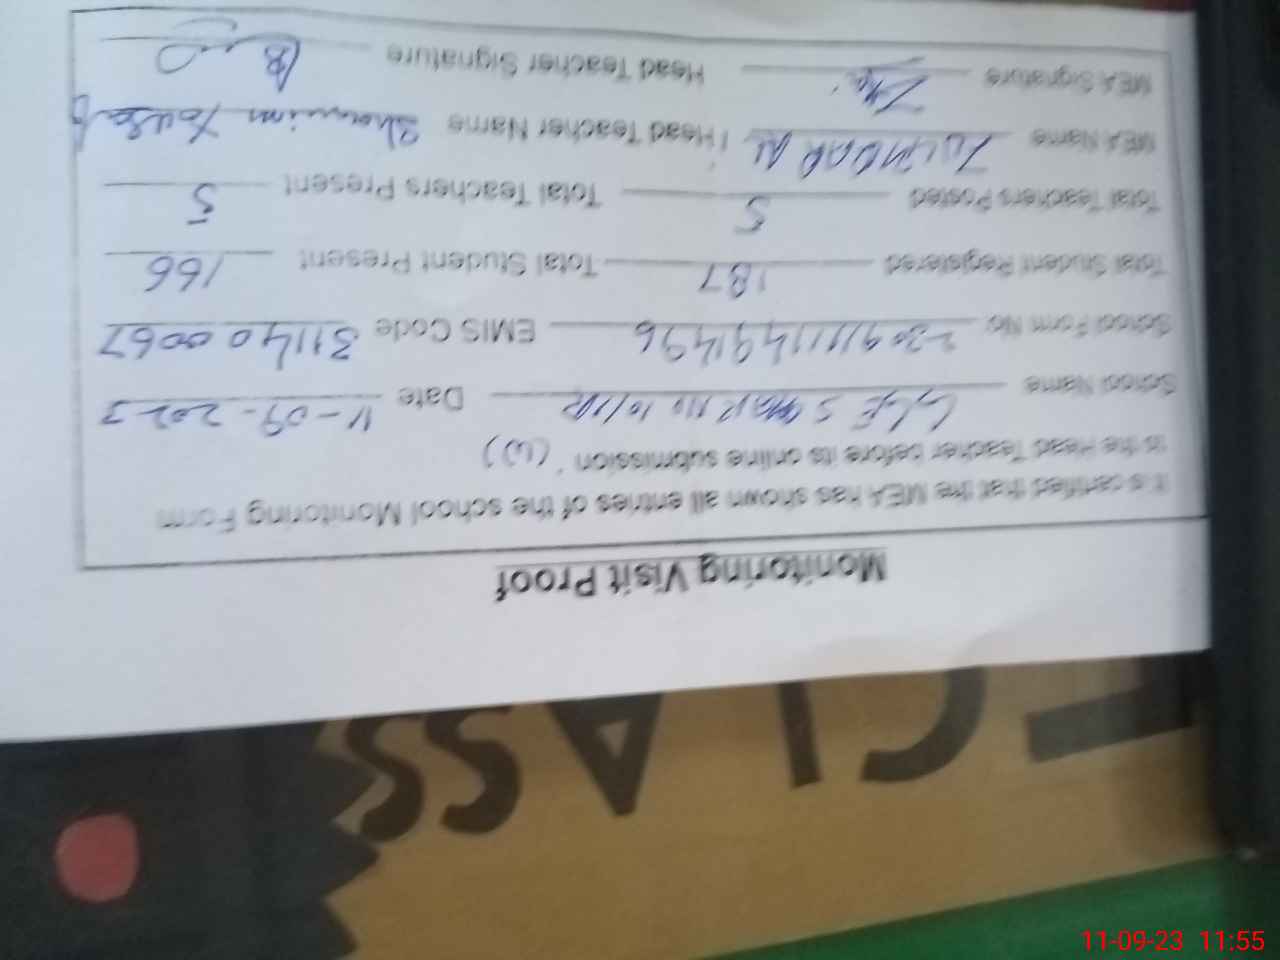 Monitoring Visit Proof
It is certified that the MEA has shown all entries of the school Monitoring Form
to the Head Teacher before its online submission.
School Name Date 11-09-2023
School Form No EMIS Code 311400067
Total Student Registered 187 Total Student Present 166
Total Teachers Posted 5 Total Teachers Present 5
MEA Name Head Teacher Name
MEA Signature Head Teacher Signature
CLASS
11-09-23 11:55